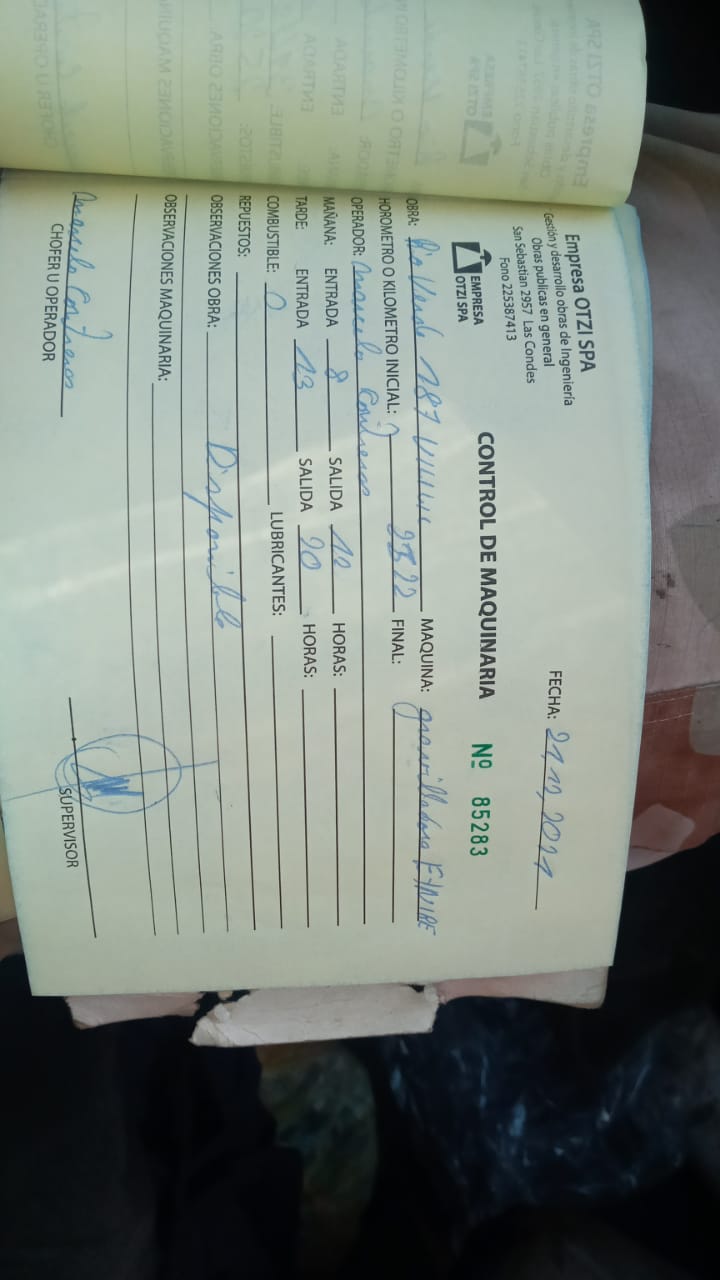 Empresa OTZI SPA
Gestión y desarrollo obras de Ingeniería
Obras publicas en general
San Sebastian 2957 Las Condes
Fono 225387413
EMPRESA
OTZI SPA
FECHA: 21,12,2021
CONTROL DE MAQUINARIA Nº 85283
OBRA: Rio Verde 187 MAQUINA: gravilladora
HOROMETRO O KILOMETRO INICIAL: FINAL:
OPERADOR: Marcelo Contreras
MAÑANA: ENTRADA 8 SALIDA 12 HORAS:
TARDE: ENTRADA 13 SALIDA 20 HORAS:
COMBUSTIBLE: 0 LUBRICANTES:
REPUESTOS:
OBSERVACIONES OBRA: Disponible
OBSERVACIONES MAQUINARIA:
Marcelo Contreras
CHOFER U OPERADOR
SUPERVISOR